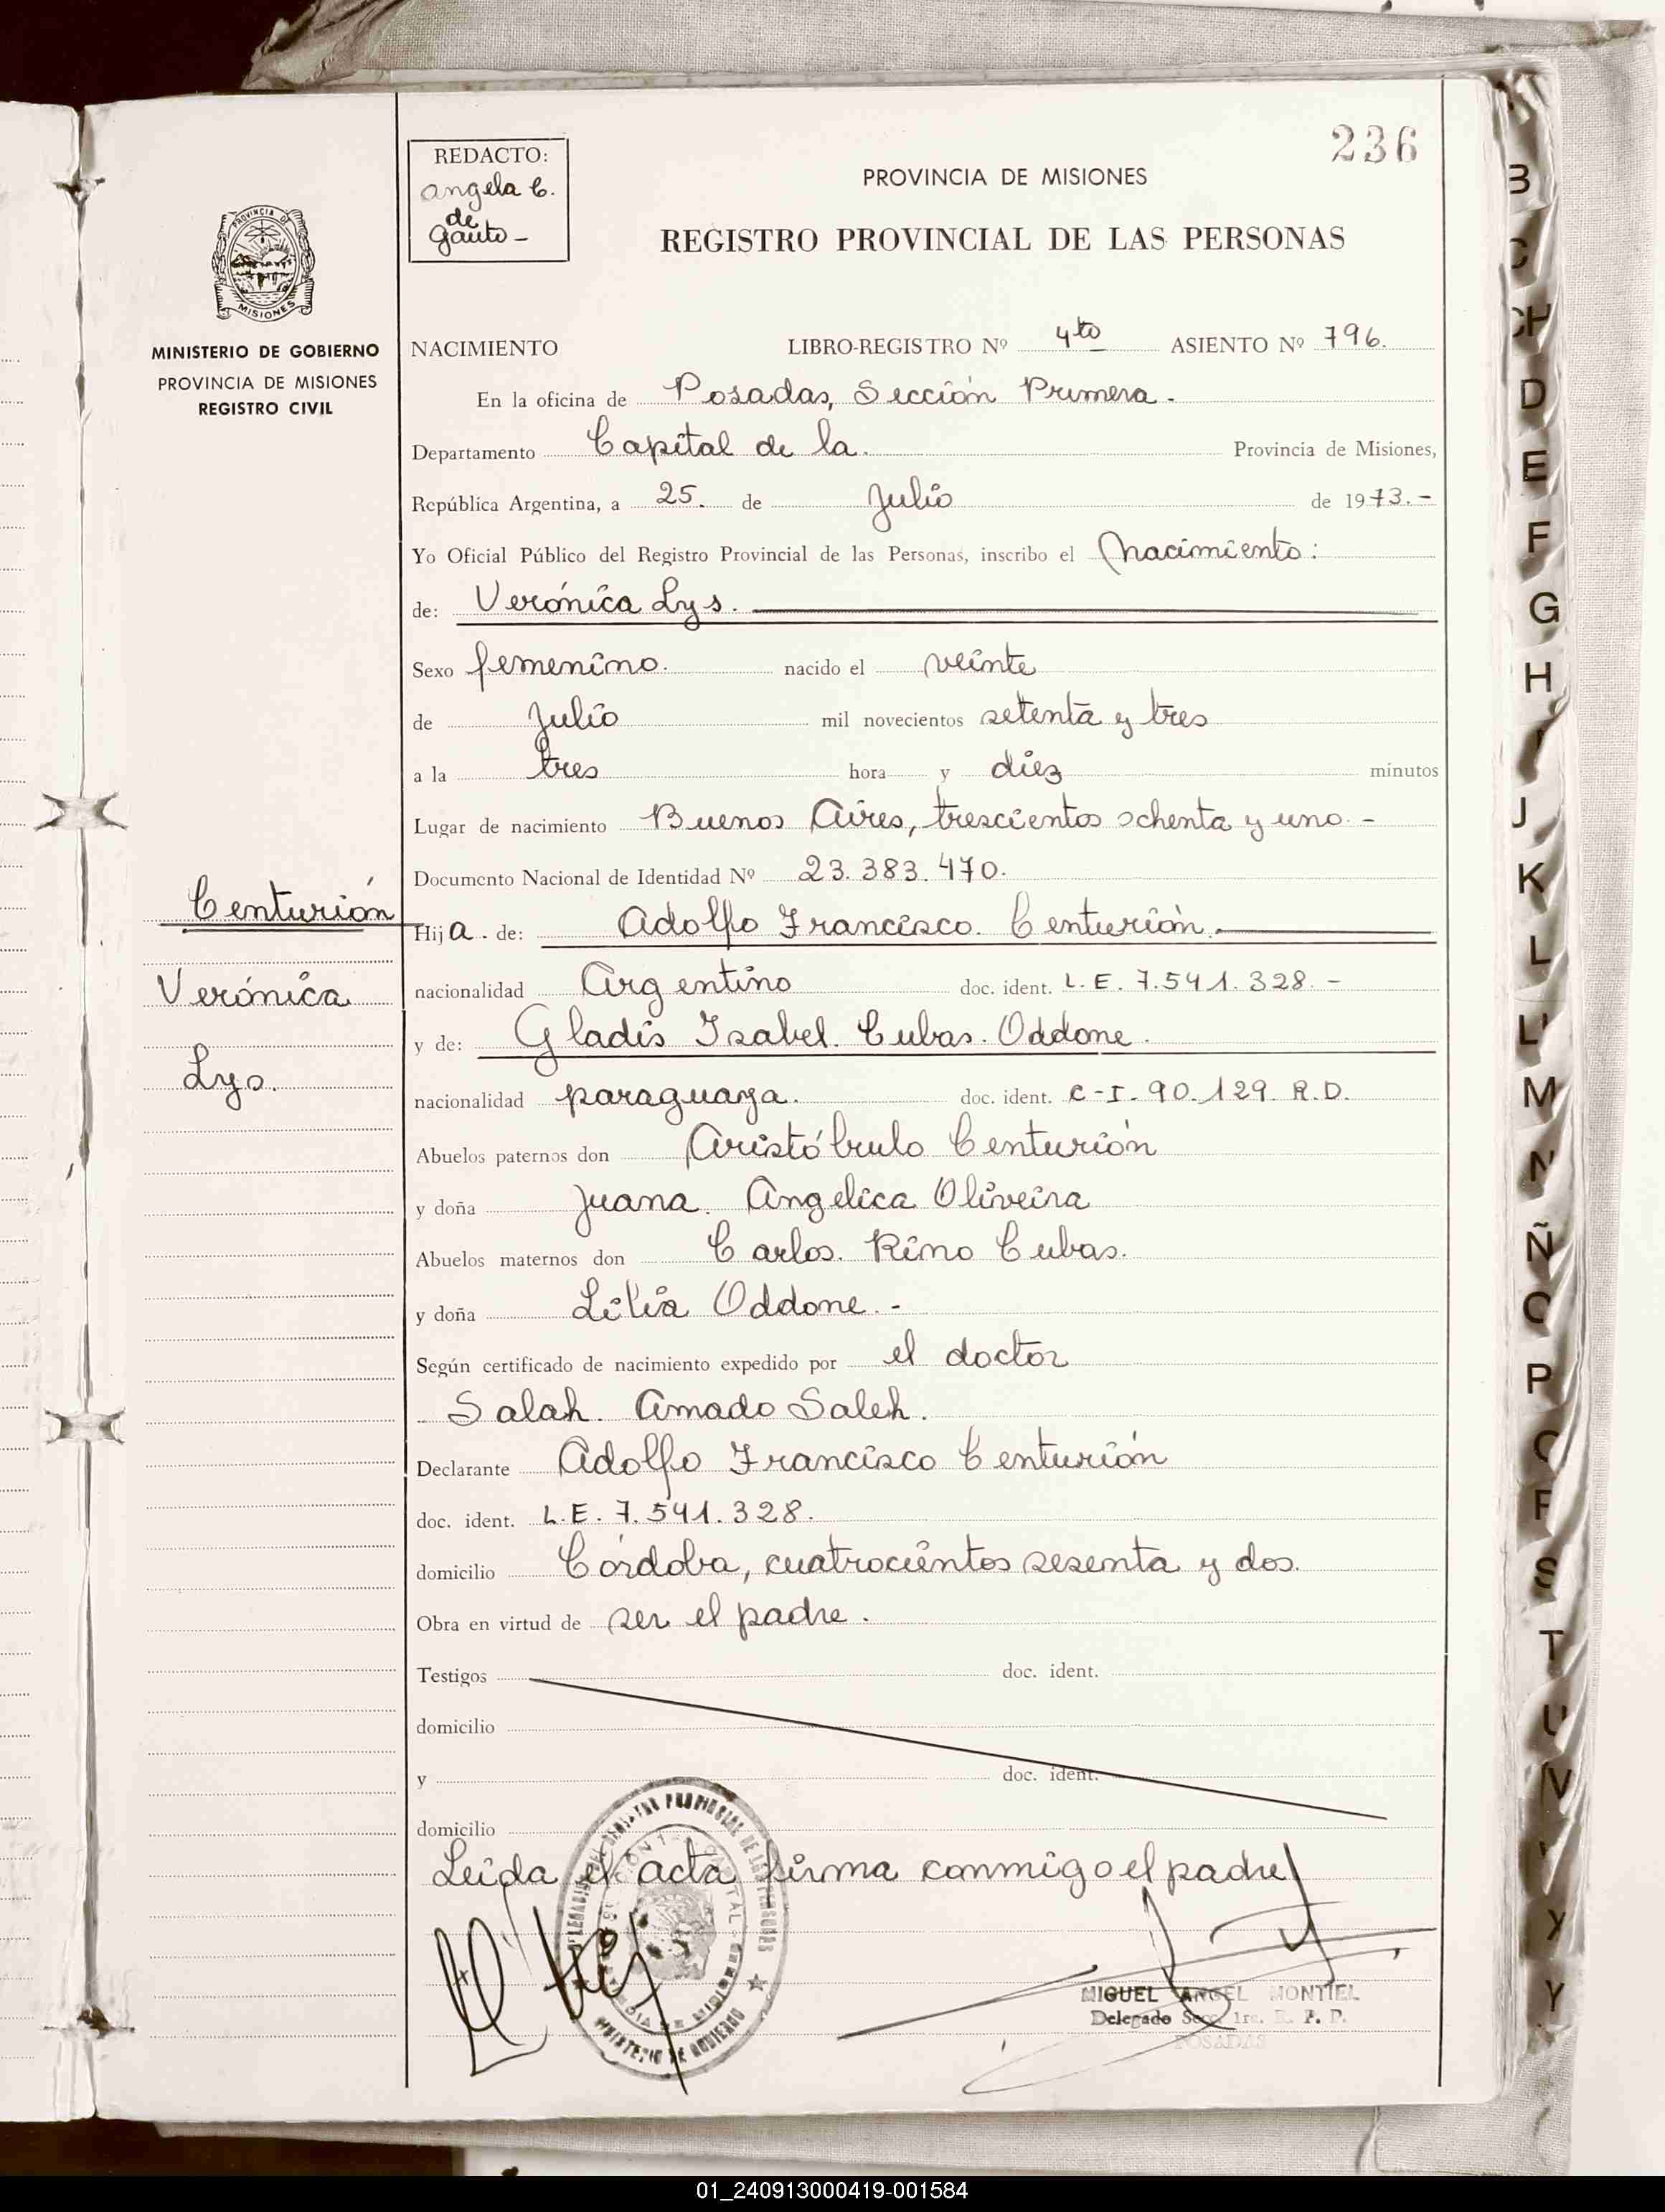 236
REDACTO:
angela C.
de
Gauto -
PROVINCIA DE MISIONES
REGISTRO PROVINCIAL DE LAS PERSONAS
PROVINCIA DE
MISIONES
MINISTERIO DE GOBIERNO
PROVINCIA DE MISIONES
REGISTRO CIVIL
NACIMIENTO LIBRO-REGISTRO Nº 4to ASIENTO Nº 796.
En la oficina de Posadas, Sección Primera.-
Departamento Capital de la. Provincia de Misiones,
República Argentina, a 25. de Julio de 1973.-
Yo Oficial Público del Registro Provincial de las Personas, inscribo el Nacimiento:
de: Verónica Lys.
Sexo femenino. nacido el veinte
de Julio mil novecientos setenta y tres
a la tres hora y diez minutos
Lugar de nacimiento Buenos Aires, trescientos ochenta y uno.-
Documento Nacional de Identidad Nº 23.383.470.
Centurión
Hija. de: Adolfo Francisco. Centurión.
Verónica
nacionalidad Argentino doc. ident. L.E. 7.541.328.-
y de: Gladis Isabel. Cubas. Oddone.
Lys.
nacionalidad paraguaya. doc. ident. C-I-90.129. R.D.
Abuelos paternos don Aristóbulo Centurión
y doña Juana. Angelica Oliveira
Abuelos maternos don Carlos. Rino Cubas.
y doña Lilia Oddone.-
Según certificado de nacimiento expedido por el doctor
Salah. Amado Saleh.
Declarante Adolfo Francisco Centurión
doc. ident. L.E. 7.541.328.
domicilio Córdoba, cuatrocientos sesenta y dos.
Obra en virtud de ser el padre.
Testigos doc. ident.
domicilio
y doc. ident.
domicilio
Leida el acta firma conmigo el padre
MIGUEL ANGEL MONTIEL
Delegado Secc. 1ra. R. P. P.
POSADAS
MINISTERIO DE GOBIERNO
B
C
CH
D
E
F
G
H
I
J
K
L
LL
M
N
Ñ
O
P
Q
R
S
T
U
V
X
Y
01_240913000419-001584